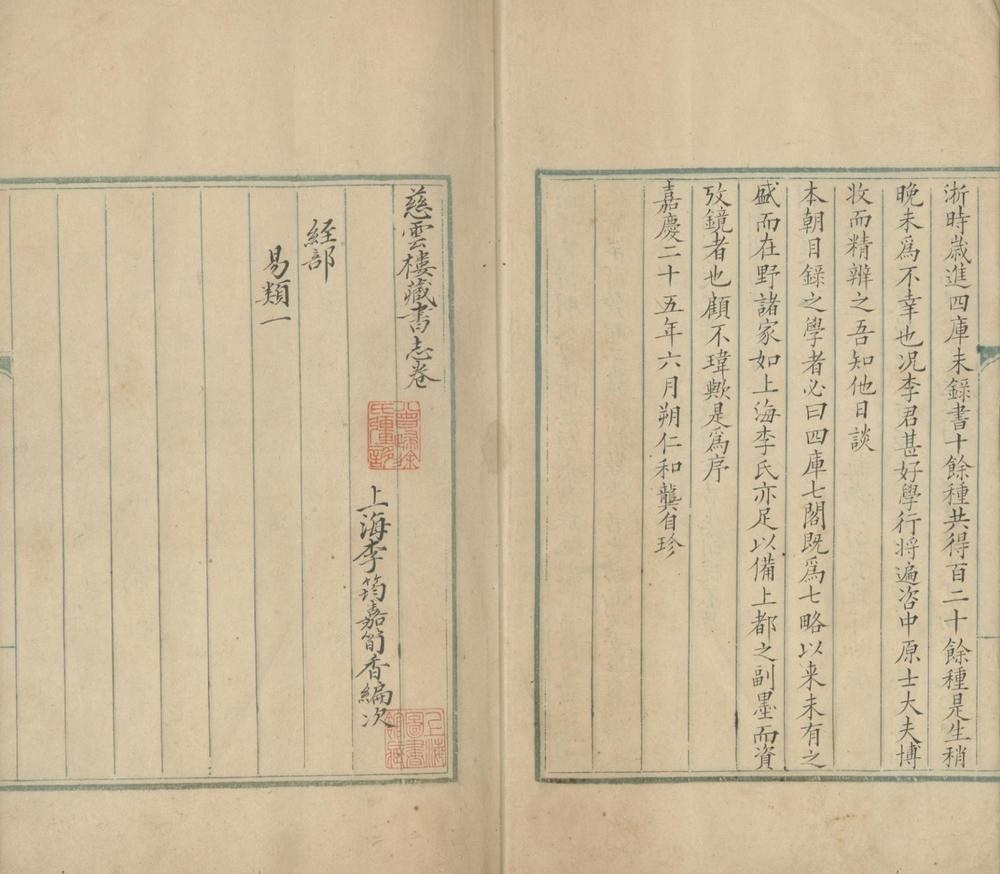 浙時歲進四庫未錄書十餘種共得百二十餘種是生稍
晚未爲不幸也况李君甚好學行将遍咨中原士大夫博
收而精辨之吾知他日談
本朝目錄之學者必曰四庫七閣既爲七略以来未有之
盛而在野諸家如上海李氏亦足以備上都之副墨而資
攷鏡者也顧不瑋歟是爲序
嘉慶二十五年六月朔仁和龔自珍
慈雲樓藏書志卷
上海李筠嘉筍香編次
経部
易類一
上海圖書館藏